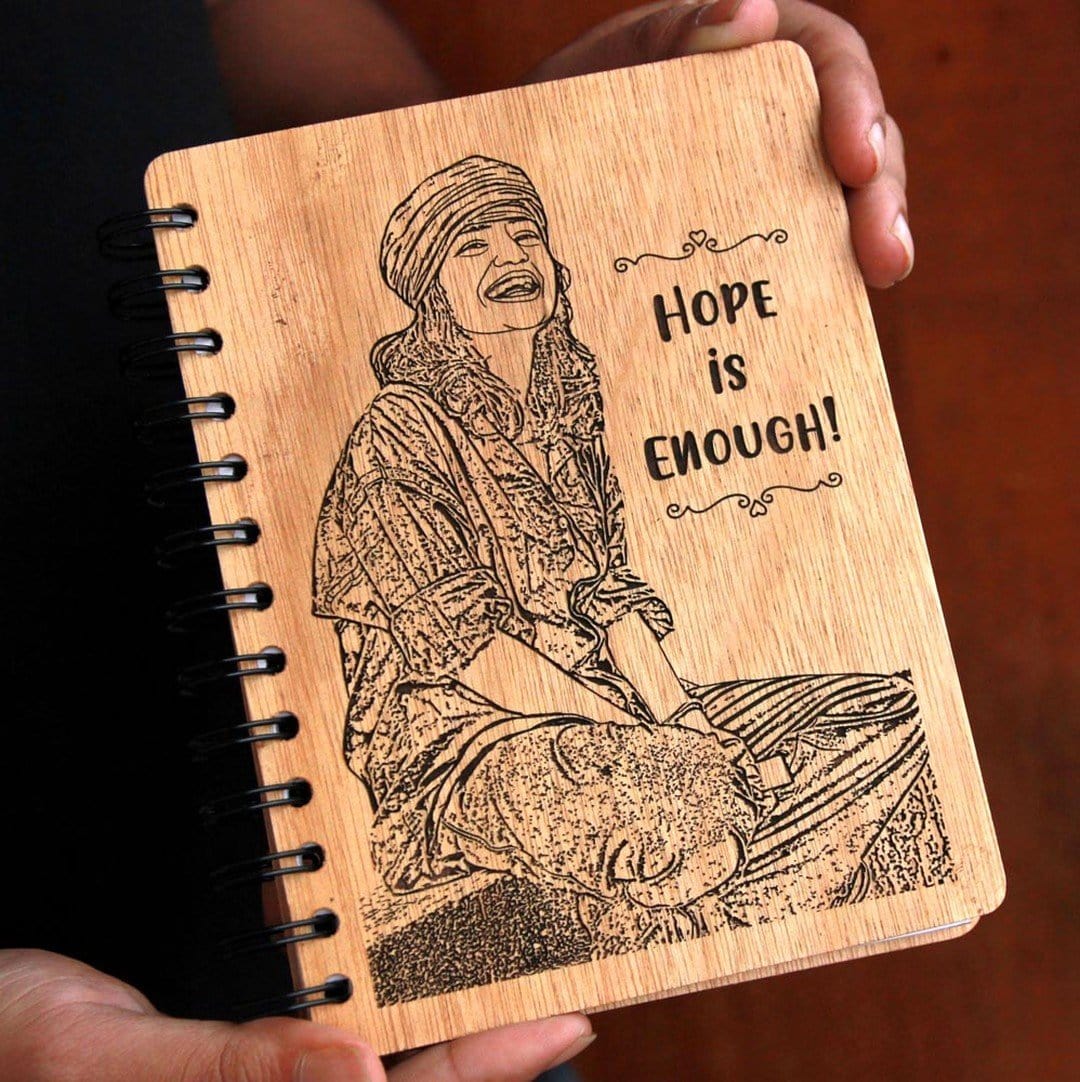 HOPE
is
ENOUGH!